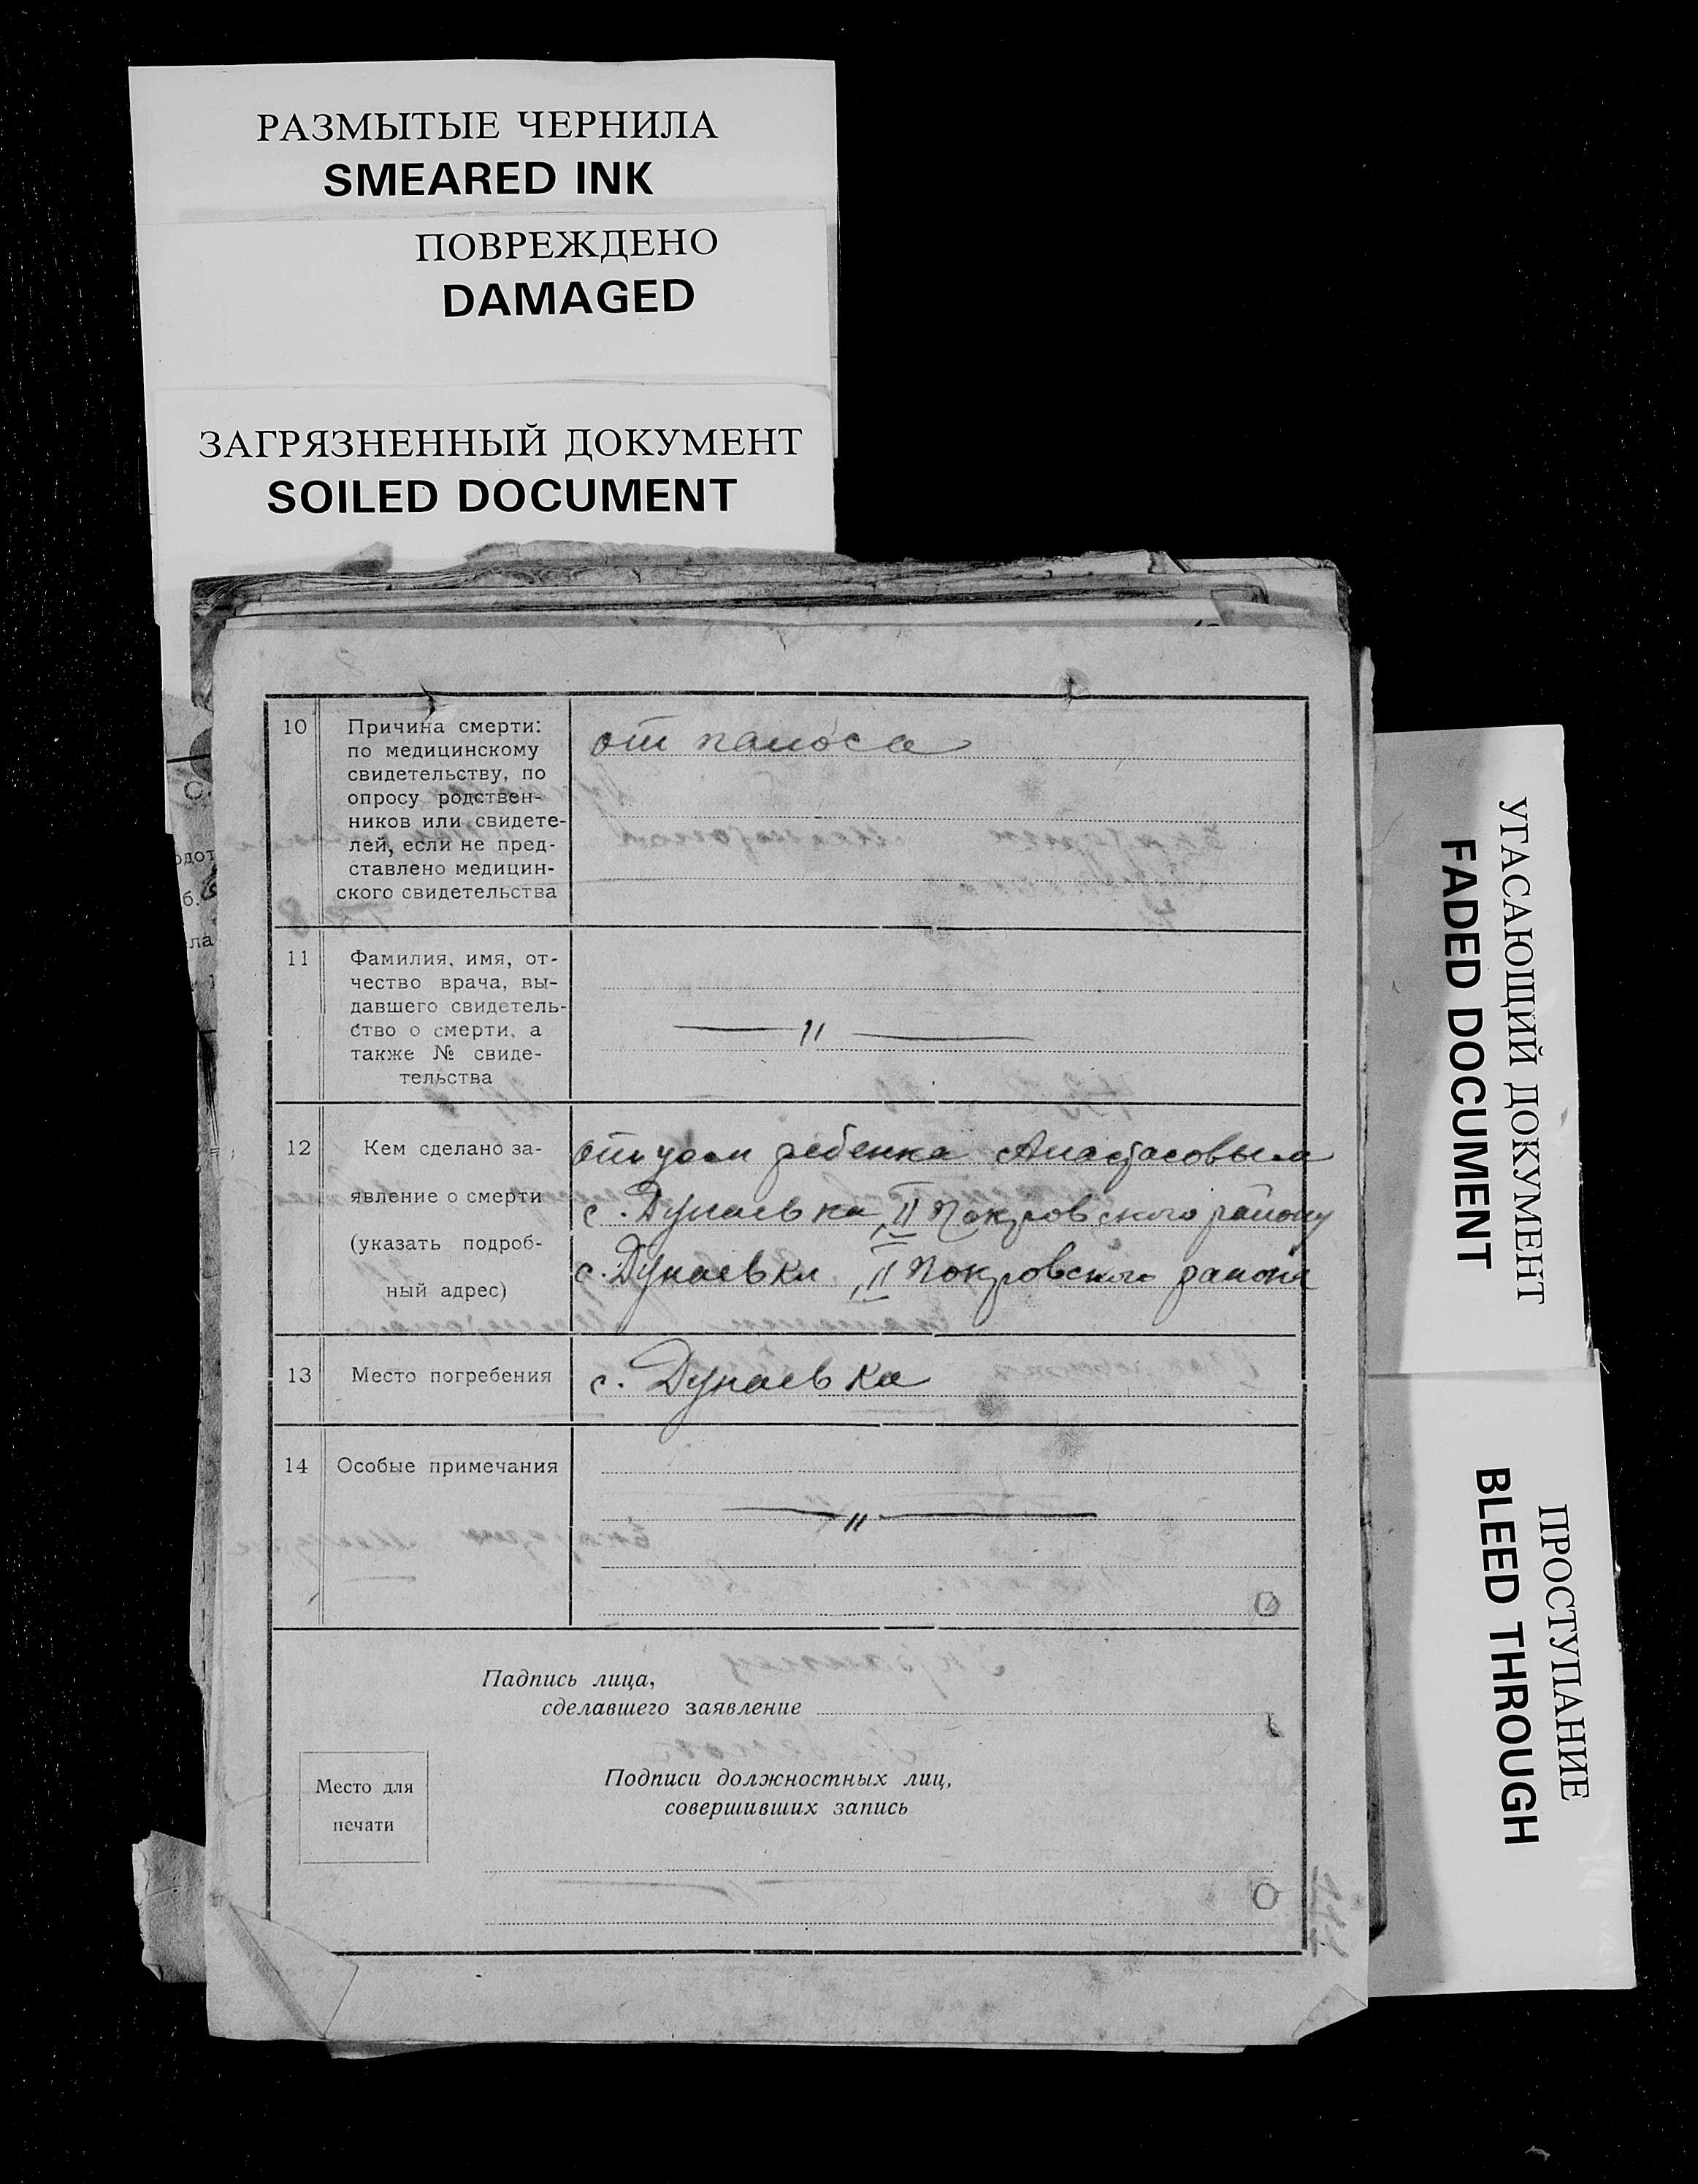 РАЗМЫТЫЕ ЧЕРНИЛА
SMEARED INK
ПОВРЕЖДЕНО
DAMAGED
ЗАГРЯЗНЕННЫЙ ДОКУМЕНТ
SOILED DOCUMENT
10
Причина смерти:
по медицинскому
свидетельству, по
опросу родствен-
ников или свидете-
лей, если не пред-
ставлено медицин-
ского свидетельства
от паноса
11
Фамилия, имя, от-
чество врача, вы-
давшего свидетель-
ство о смерти, а
также № свиде-
тельства
— " —
12
Кем сделано за-
явление о смерти
(указать подроб-
ный адрес)
отцом ребенка Анастасовым
с. Дунаевка, II Покровского району
с. Дунаевки, II Покровского района
13
Место погребения
с. Дунаевка
14
Особые примечания
— " —
Падпись лица,
сделавшего заявление
Место для
печати
Подписи должностных лиц,
совершивших запись
УГАСАЮЩИЙ ДОКУМЕНТ
FADED DOCUMENT
ПРОСТУПАНИЕ
BLEED THROUGH